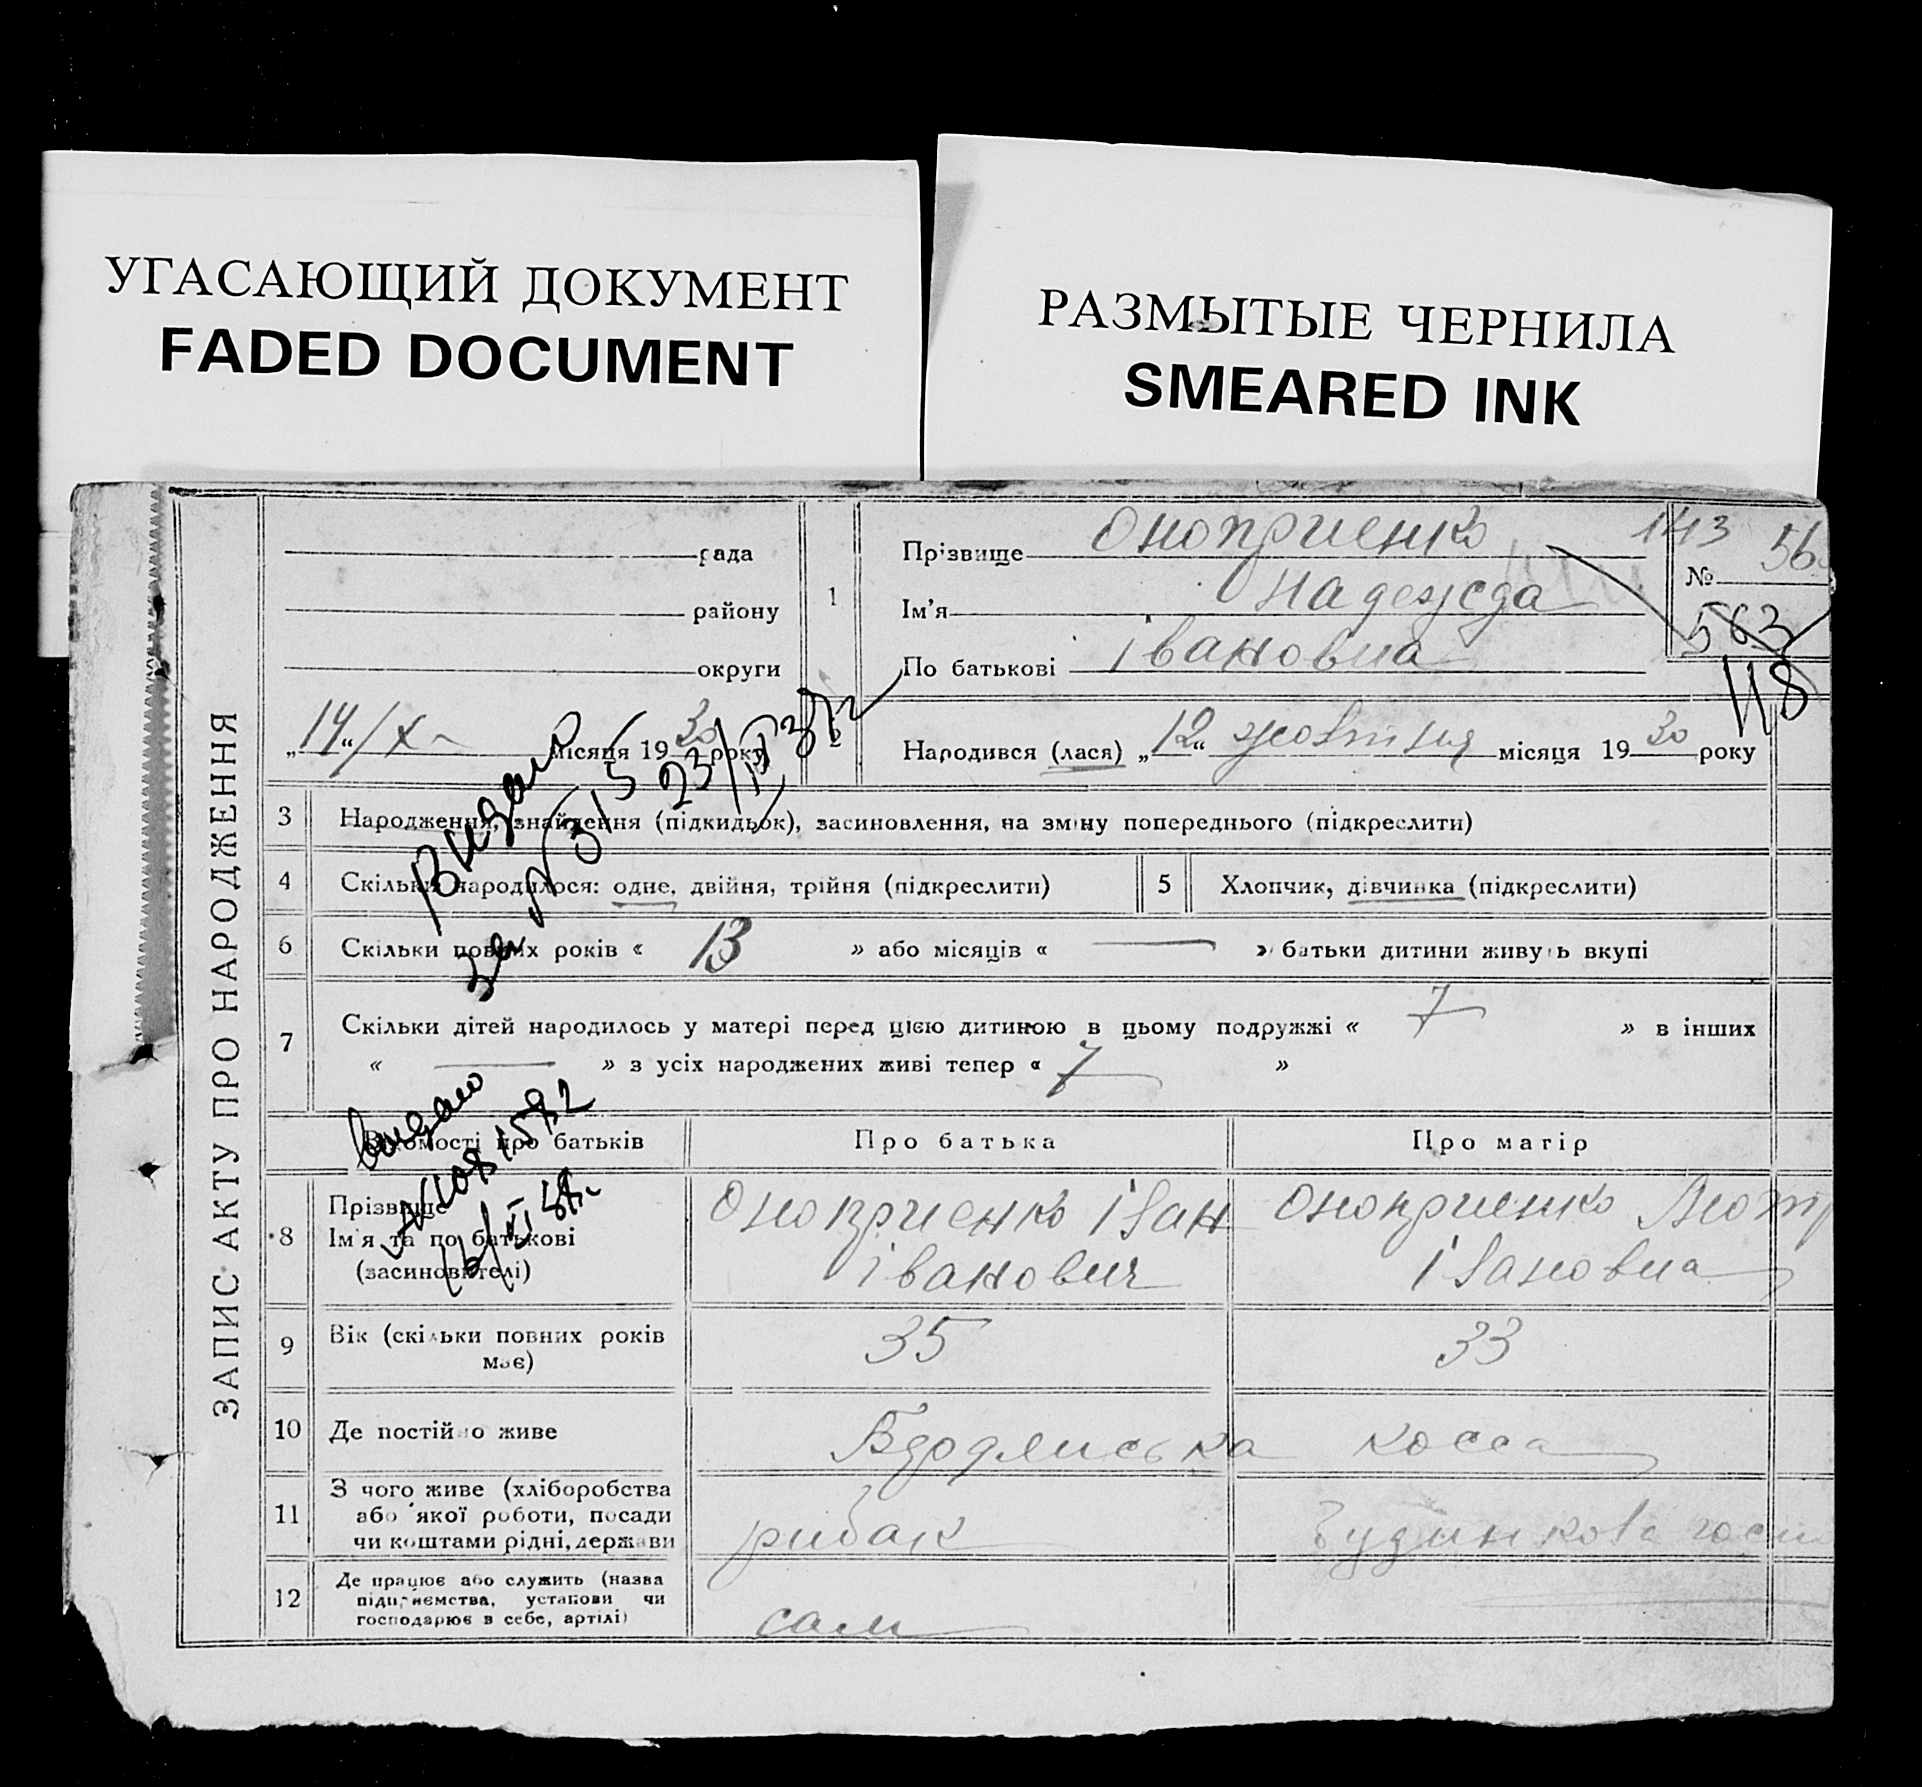 УГАСАЮЩИЙ ДОКУМЕНТ
FADED DOCUMENT
РАЗМЫТЫЕ ЧЕРНИЛА
SMEARED INK
ЗАПИС АКТУ ПРО НАРОДЖЕННЯ
рада
району
округи
„14“/X- місяця 1930 року
1
Прізвище Оноприенко
Ім'я Надежда
По батькові Івановна
143
№ 56
563
118
2
Народився (лася) „12“ жовтня місяця 1930 року
3 Народження, знайдення (підкидьок), засиновлення, на зміну попереднього (підкреслити)
4 Скільки народилося: одне, двійня, трійня (підкреслити)
5 Хлопчик, дівчинка (підкреслити)
6 Скільки повних років « 13 » або місяців « — » батьки дитини живуть вкупі
7 Скільки дітей народилось у матері перед цією дитиною в цьому подружжі « 7 » в інших
« — » з усіх народжених живі тепер « 7 »
Видано
за № 315 23/
Видано
Відомості про батьків
Про батька
Про матір
8 Прізвище
Ім'я та по батькові
(засиновителі)
Оноприенко Іван
Іванович
Оноприенко
Івановна
9 Вік (скільки повних років
має)
35
33
10 Де постійно живе
Бдодянська косса
11 З чого живе (хліборобства
або якої роботи, посади
чи коштами рідні, держави
рибак
будинкова госп
12 Де працює або служить (назва
підприємства, установи чи
господарює в себе, артілі)
сам